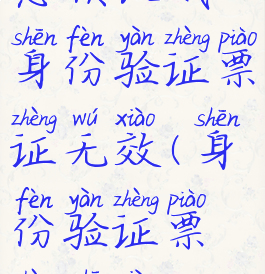 shēn fèn yàn zhèng piào
身份验证票
zhèng wú xiào shēn
证无效(身
fèn yàn zhèng piào
份验证票